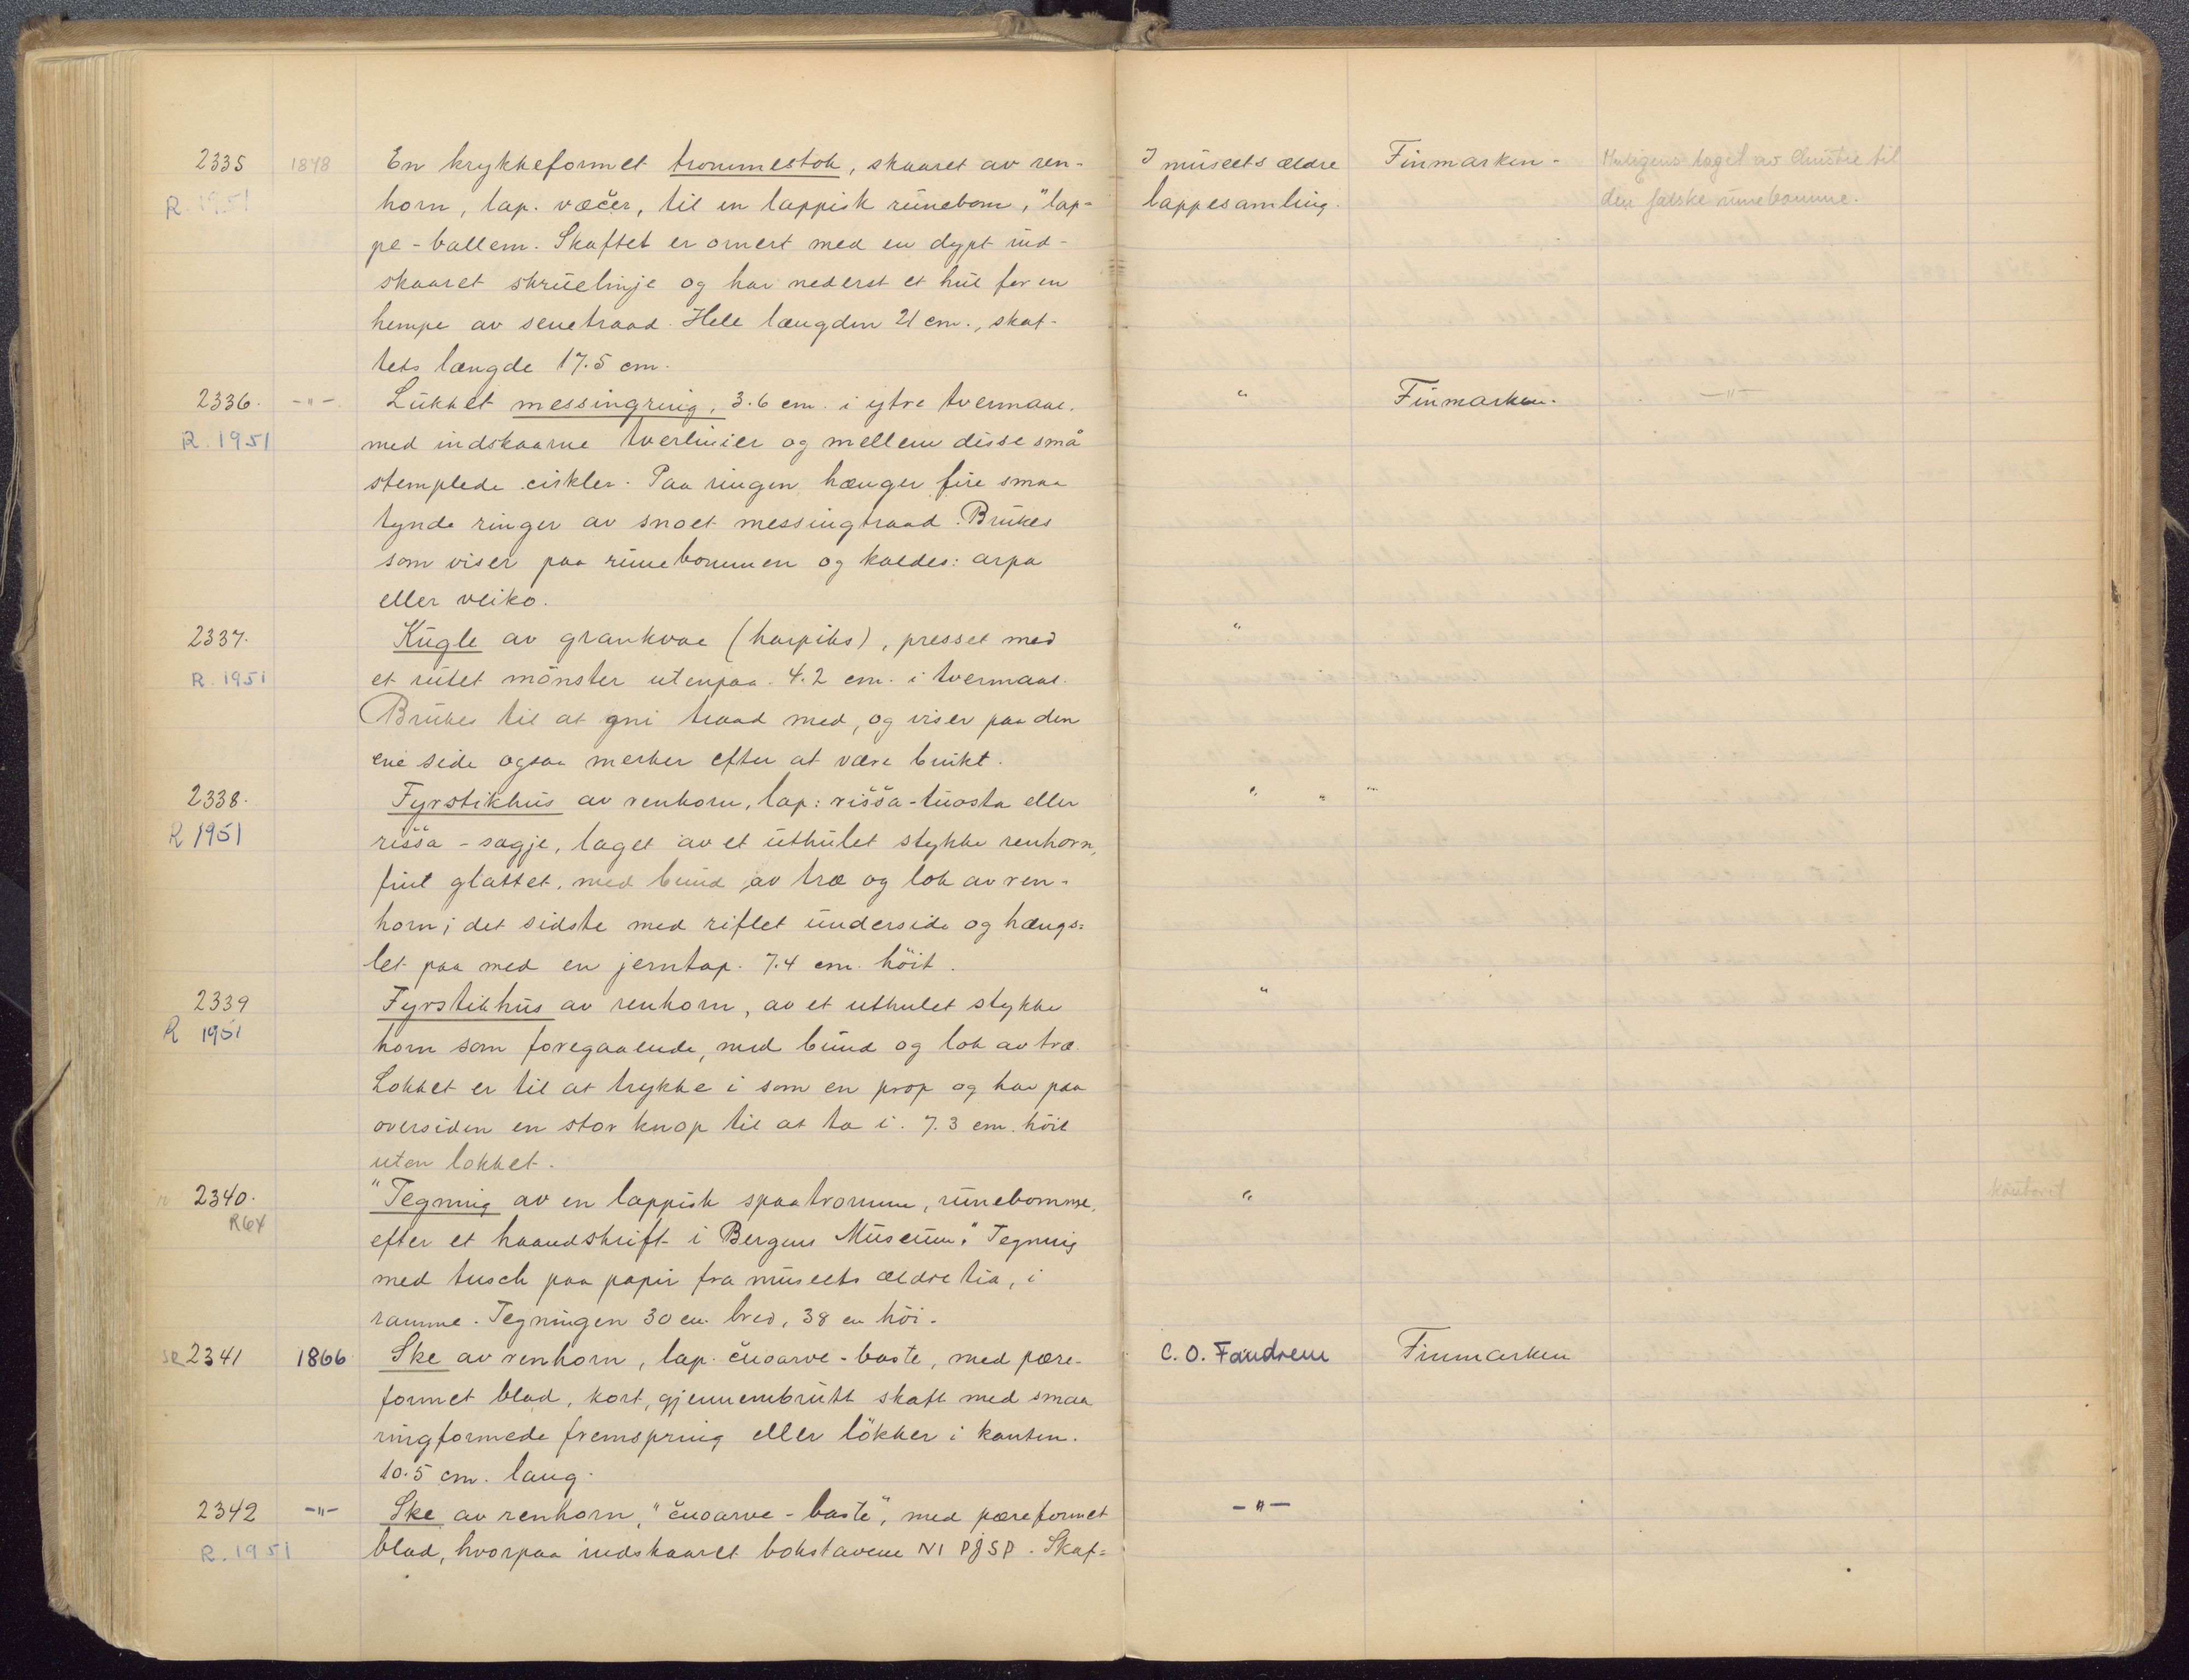 2335 1848 En krykkeformet trommestok, skaaret av ren- I museets ældre Finmarken.
R. 1951 horn, lap. væčer, til en lappisk runebom, "lap- lappesamling. den falske runebomme.
pe-ballem. Skaftet er ornert med en dypt ind-
skaaret skruelinje og har nederst et hul for en
hempe av senetraad. Hele længden 21 cm., skaf-
tets længde 17.5 cm.
2336. -"- Lukket messingring, 3.6 cm. i ytre tvermaal. " Finmarken. -"-
R. 1951 med indskaarne tverlinier og mellem disse små
stemplede cirkler. Paa ringen hænger fire smaa
tynde ringer av snoet messingtraad. Brukes
som viser paa runebommen og kaldes: arpa
eller veiko.
2337. Kugle av grankvae (harpiks), presset med "
R. 1951 et rutet mönster utenpaa. 4.2 cm. i tvermaal.
Brukes til at gni traad med, og viser paa den
ene side ogsaa merker efter at være brukt.
2338. Fyrstikhus av renhorn, lap: rišša-tuosta eller " " "
R 1951 rišša-sagje, laget av et uthulet stykke renhorn,
fint glattet, med bund av træ og lok av ren-
horn; det sidste med riflet underside og hængs-
let paa med en jerntap. 7.4 cm. höit.
2339 Fyrstikhus av renhorn, av et uthulet stykke "
R 1951 horn som foregaaende, med bund og lok av træ.
Lokket er til at trykke i som en prop og har paa
oversiden en stor knop til at ta i. 7.3 cm. höit
uten lokket.
2340. "Tegning av en lappisk spaatromme, runebomme, " kontoret
R64 efter et haandskrift i Bergens Museum." Tegning
med tusch paa papir fra museets ældre tid, i
ramme. Tegningen 30 cm bred, 38 cm höi.
se 2341 1866 Ske av renhorn, lap. čuoarve-baste, med pære- C. O. Fandrem Finmarken
formet blad, kort, gjennembrutt skaft med smaa
ringformede fremspring eller lökker i kanten.
10.5 cm. lang.
2342 -"- Ske av renhorn, "čuoarve-baste", med pæreformet -"-
R. 1951 blad, hvorpaa indskaaret bokstavene NI PJSP. Skaf-